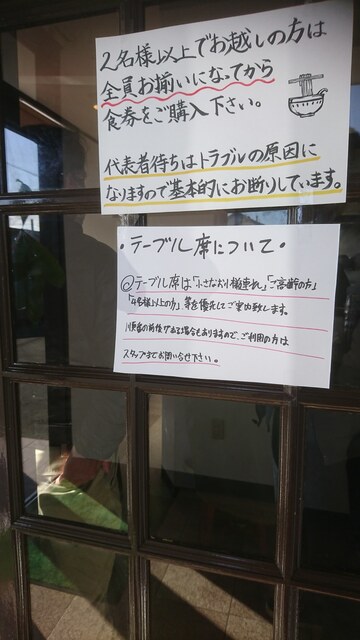 2名様以上でお越しの方は
全員お揃いになってから
食券をご購入下さい。
代表者待ちはトラブルの原因に
なりますので基本的にお断りしています。
・テーブル席について・
◎テーブル席は「小さなお子様連れ」「ご高齢の方」
「4名様以上の方」等を優先してご案内致します。
順番の前後が出る場合もありますので、ご利用の方は
スタッフまでお問い合せ下さい。